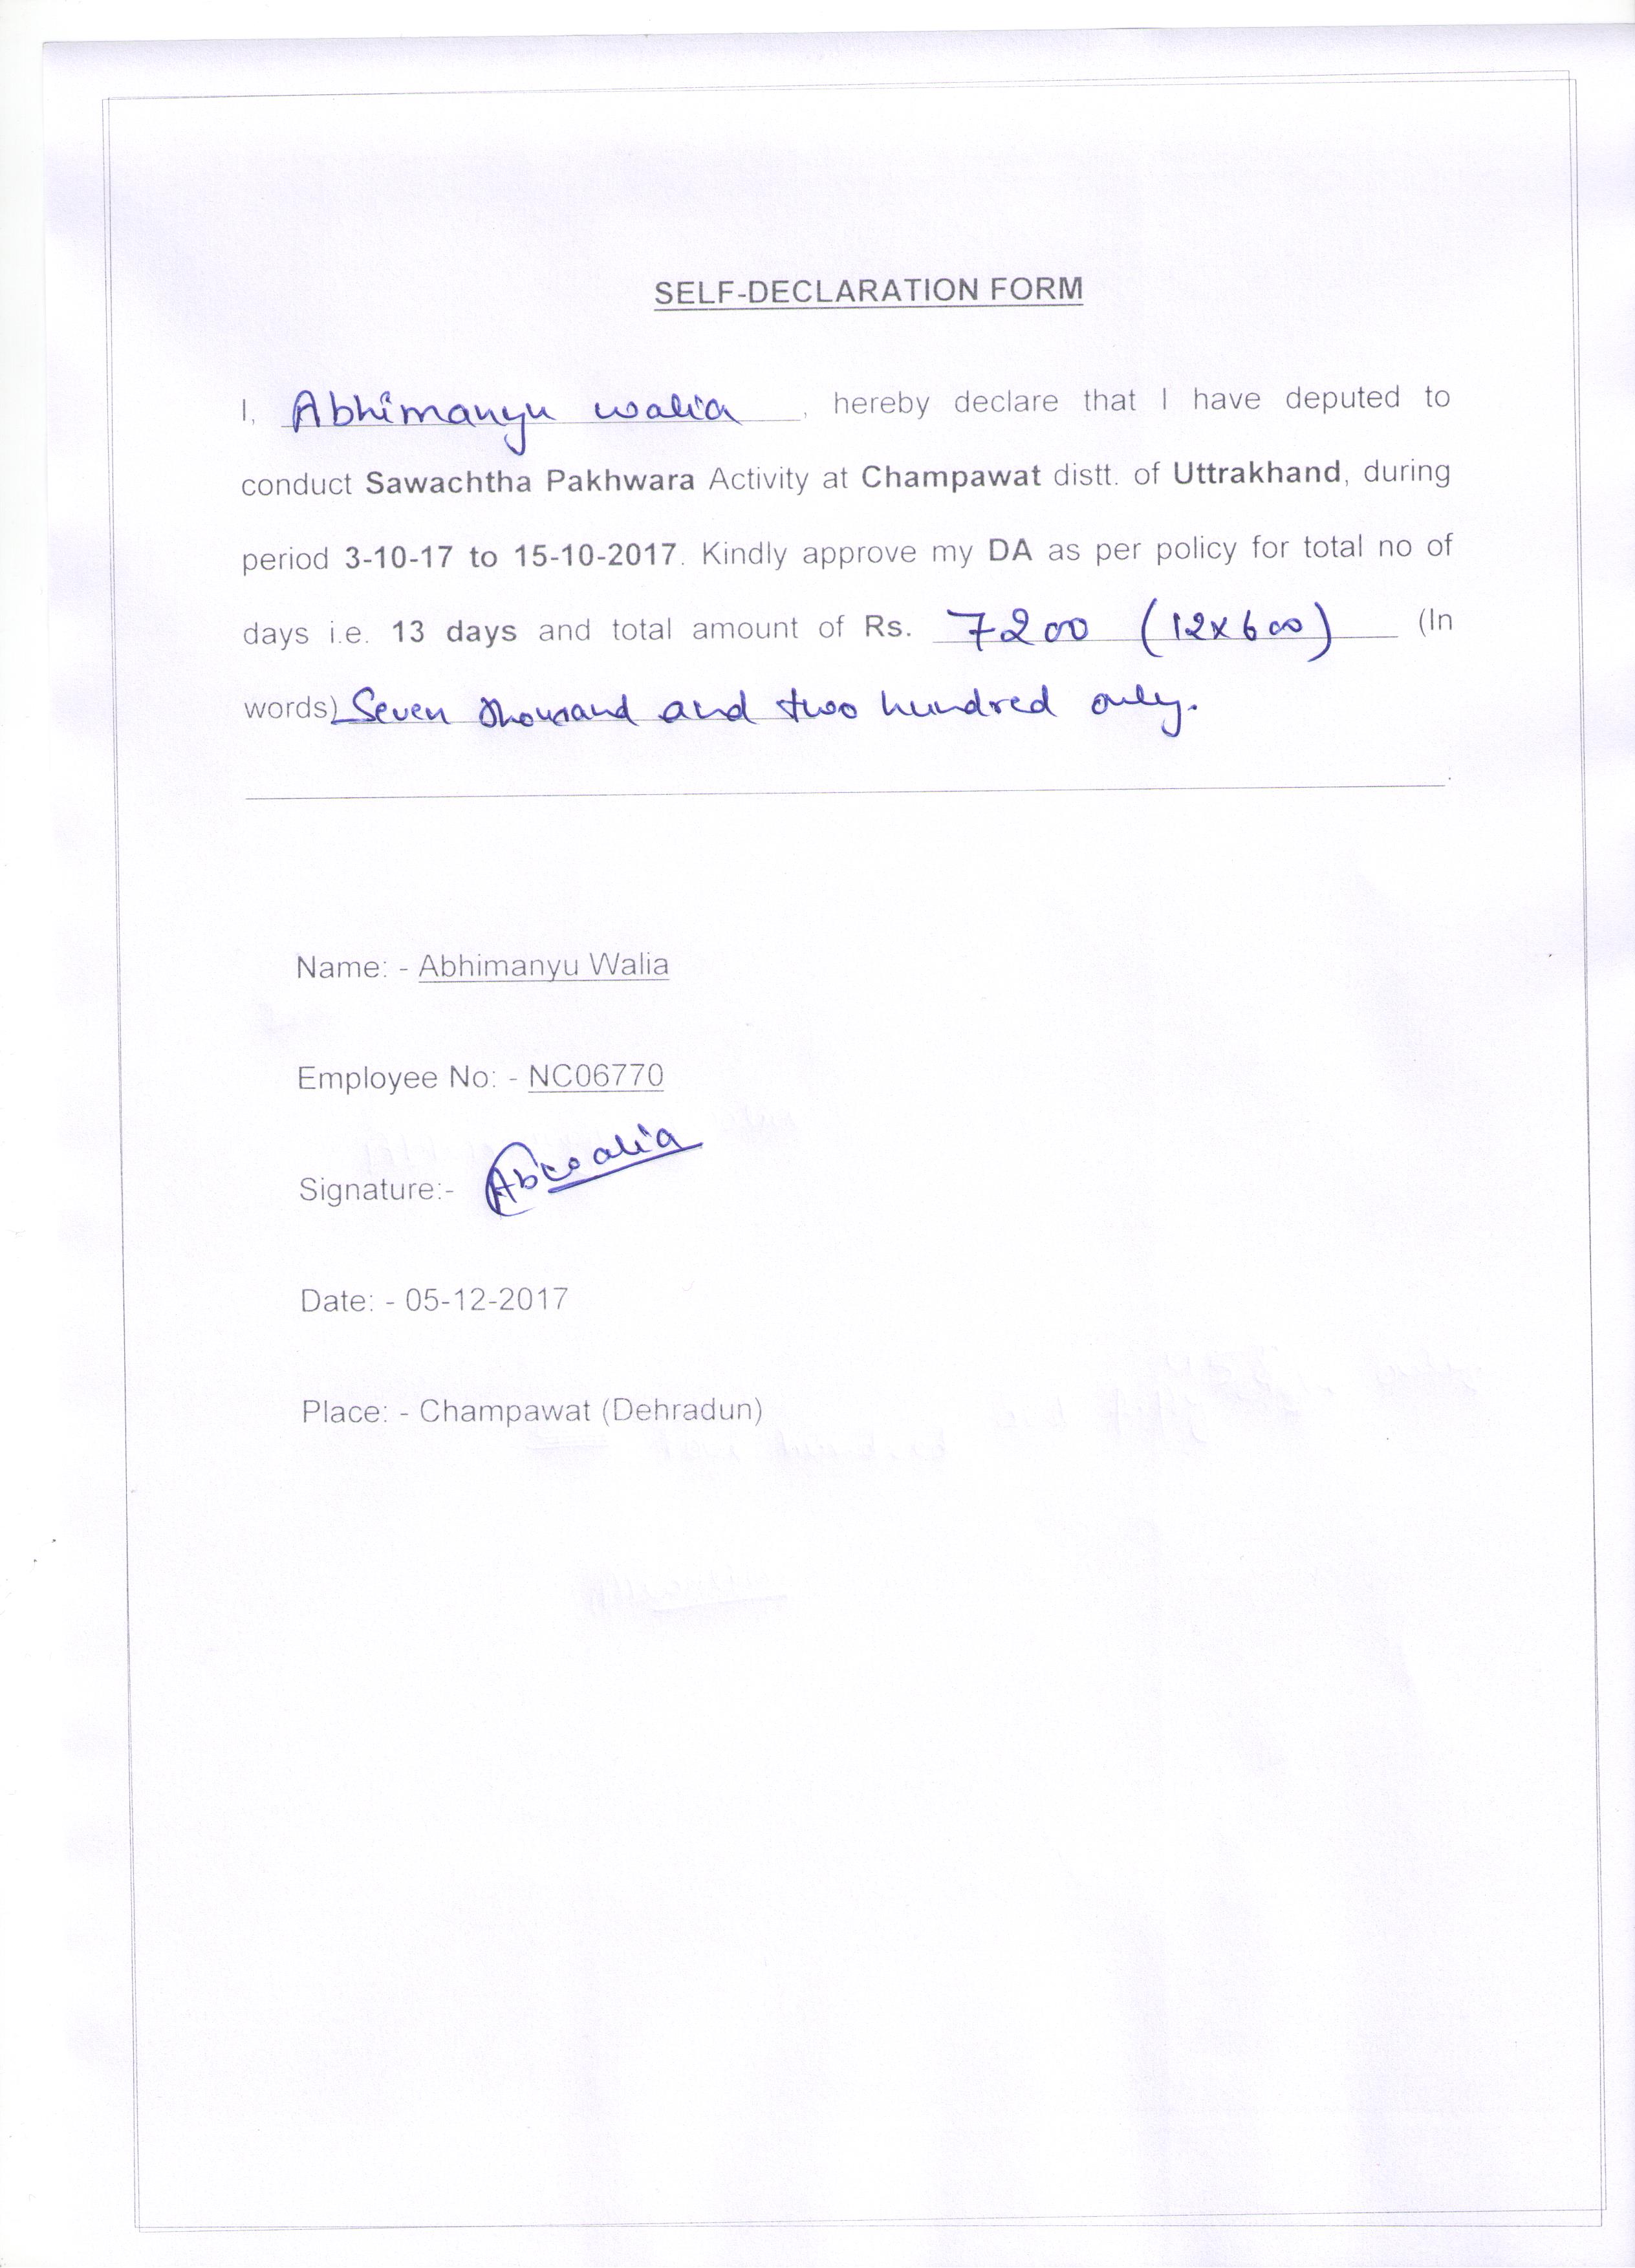 SELF-DECLARATION FORM
I, Abhimanyu walia, hereby declare that I have deputed to
conduct Sawachtha Pakhwara Activity at Champawat distt. of Uttrakhand, during
period 3-10-17 to 15-10-2017. Kindly approve my DA as per policy for total no of
days i.e. 13 days and total amount of Rs. 7200 (12x600) (In
words) Seven thousand and two hundred only.
Name: - Abhimanyu Walia
Employee No: - NC06770
Signature:- Abwalia
Date: - 05-12-2017
Place: - Champawat (Dehradun)